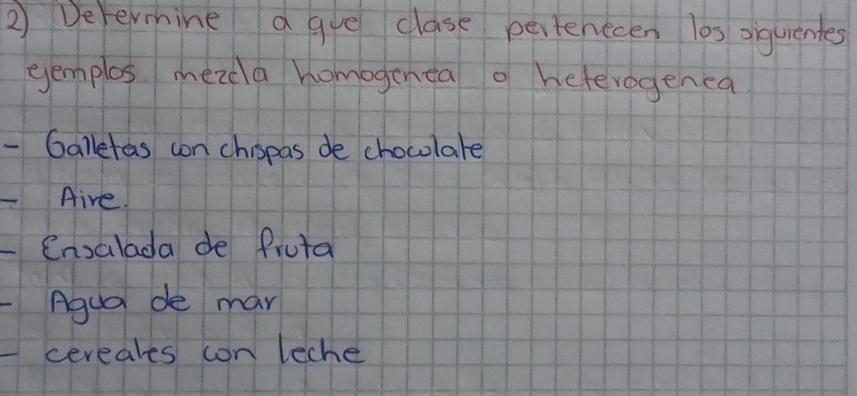 2) Determine a que clase pertenecen los siguientes
ejemplos mezcla homogenea o heterogenea
- Galletas con chispas de chocolate
- Aire.
- Ensalada de fruta
- Agua de mar
- cereales con leche